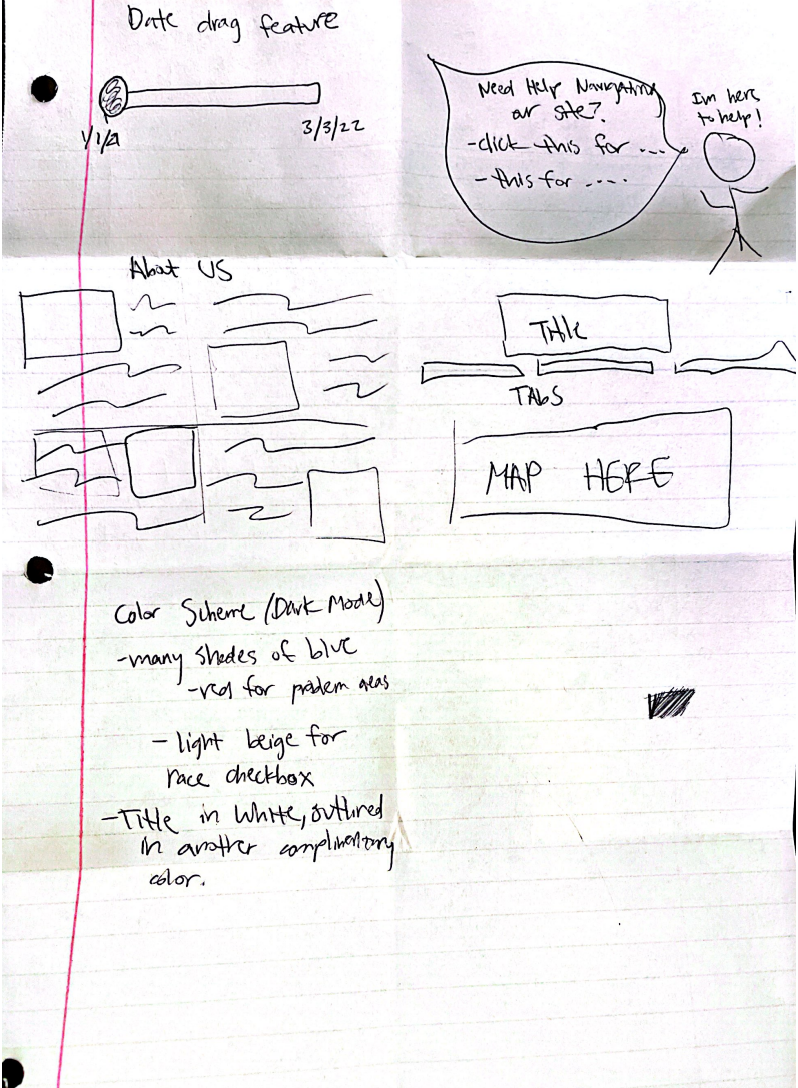 Date drag feature
3/3/22
Need Help Navigating
our site?
- click this for ...
- this for ....
I'm here
to help!
About US
Title
TAbS
MAP HERE
Color Scheme (Dark Mode)
- many shades of blue
- red for problem areas
- light beige for
race checkbox
- Title in White, outlined
in another complimentary
color.